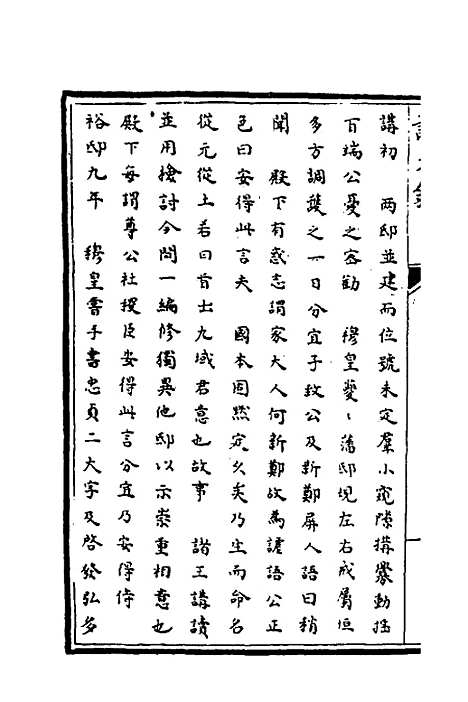 講初　兩邸並建而位號未定羣小窺隙搆釁動搖
百端公憂之密勸　穆皇夔〻藩邸規左右戒屬垣
多方調護之一日分宜子致公及新鄭屏人語曰稍
聞　殿下有惑志謂家大人何新鄭故為謔語公正
色曰安得此言夫　國本固默定久矣乃生而命名
從元從土若曰首出九域君意也故事　諸王講讀
並用檢討今問一編修獨異他邸以示崇重相意也
殿下每謂尊公社稷臣安得此言分宜乃安得侍
裕邸九年　穆皇嘗手書忠貞二大字及啓發弘多